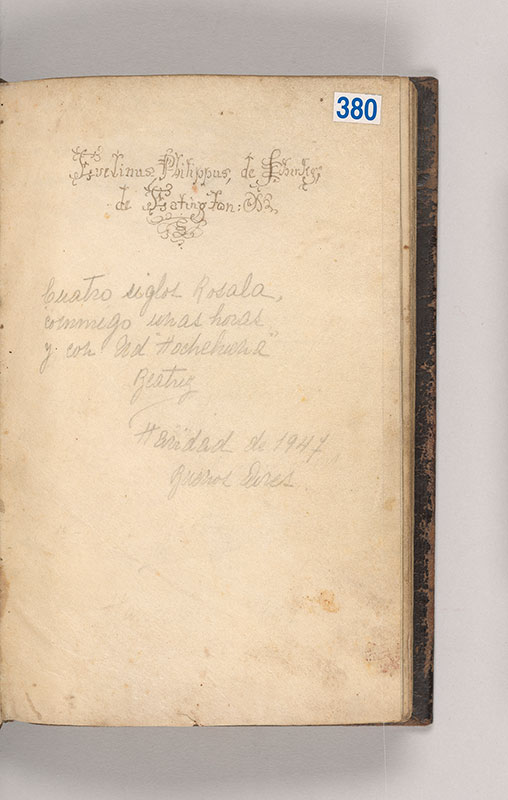 380
Evelinus Philippus, de
de
Cuatro siglos Rosala,
conmigo unas horas
y con Ud
Beatriz
Navidad de 1947
Buenos Aires